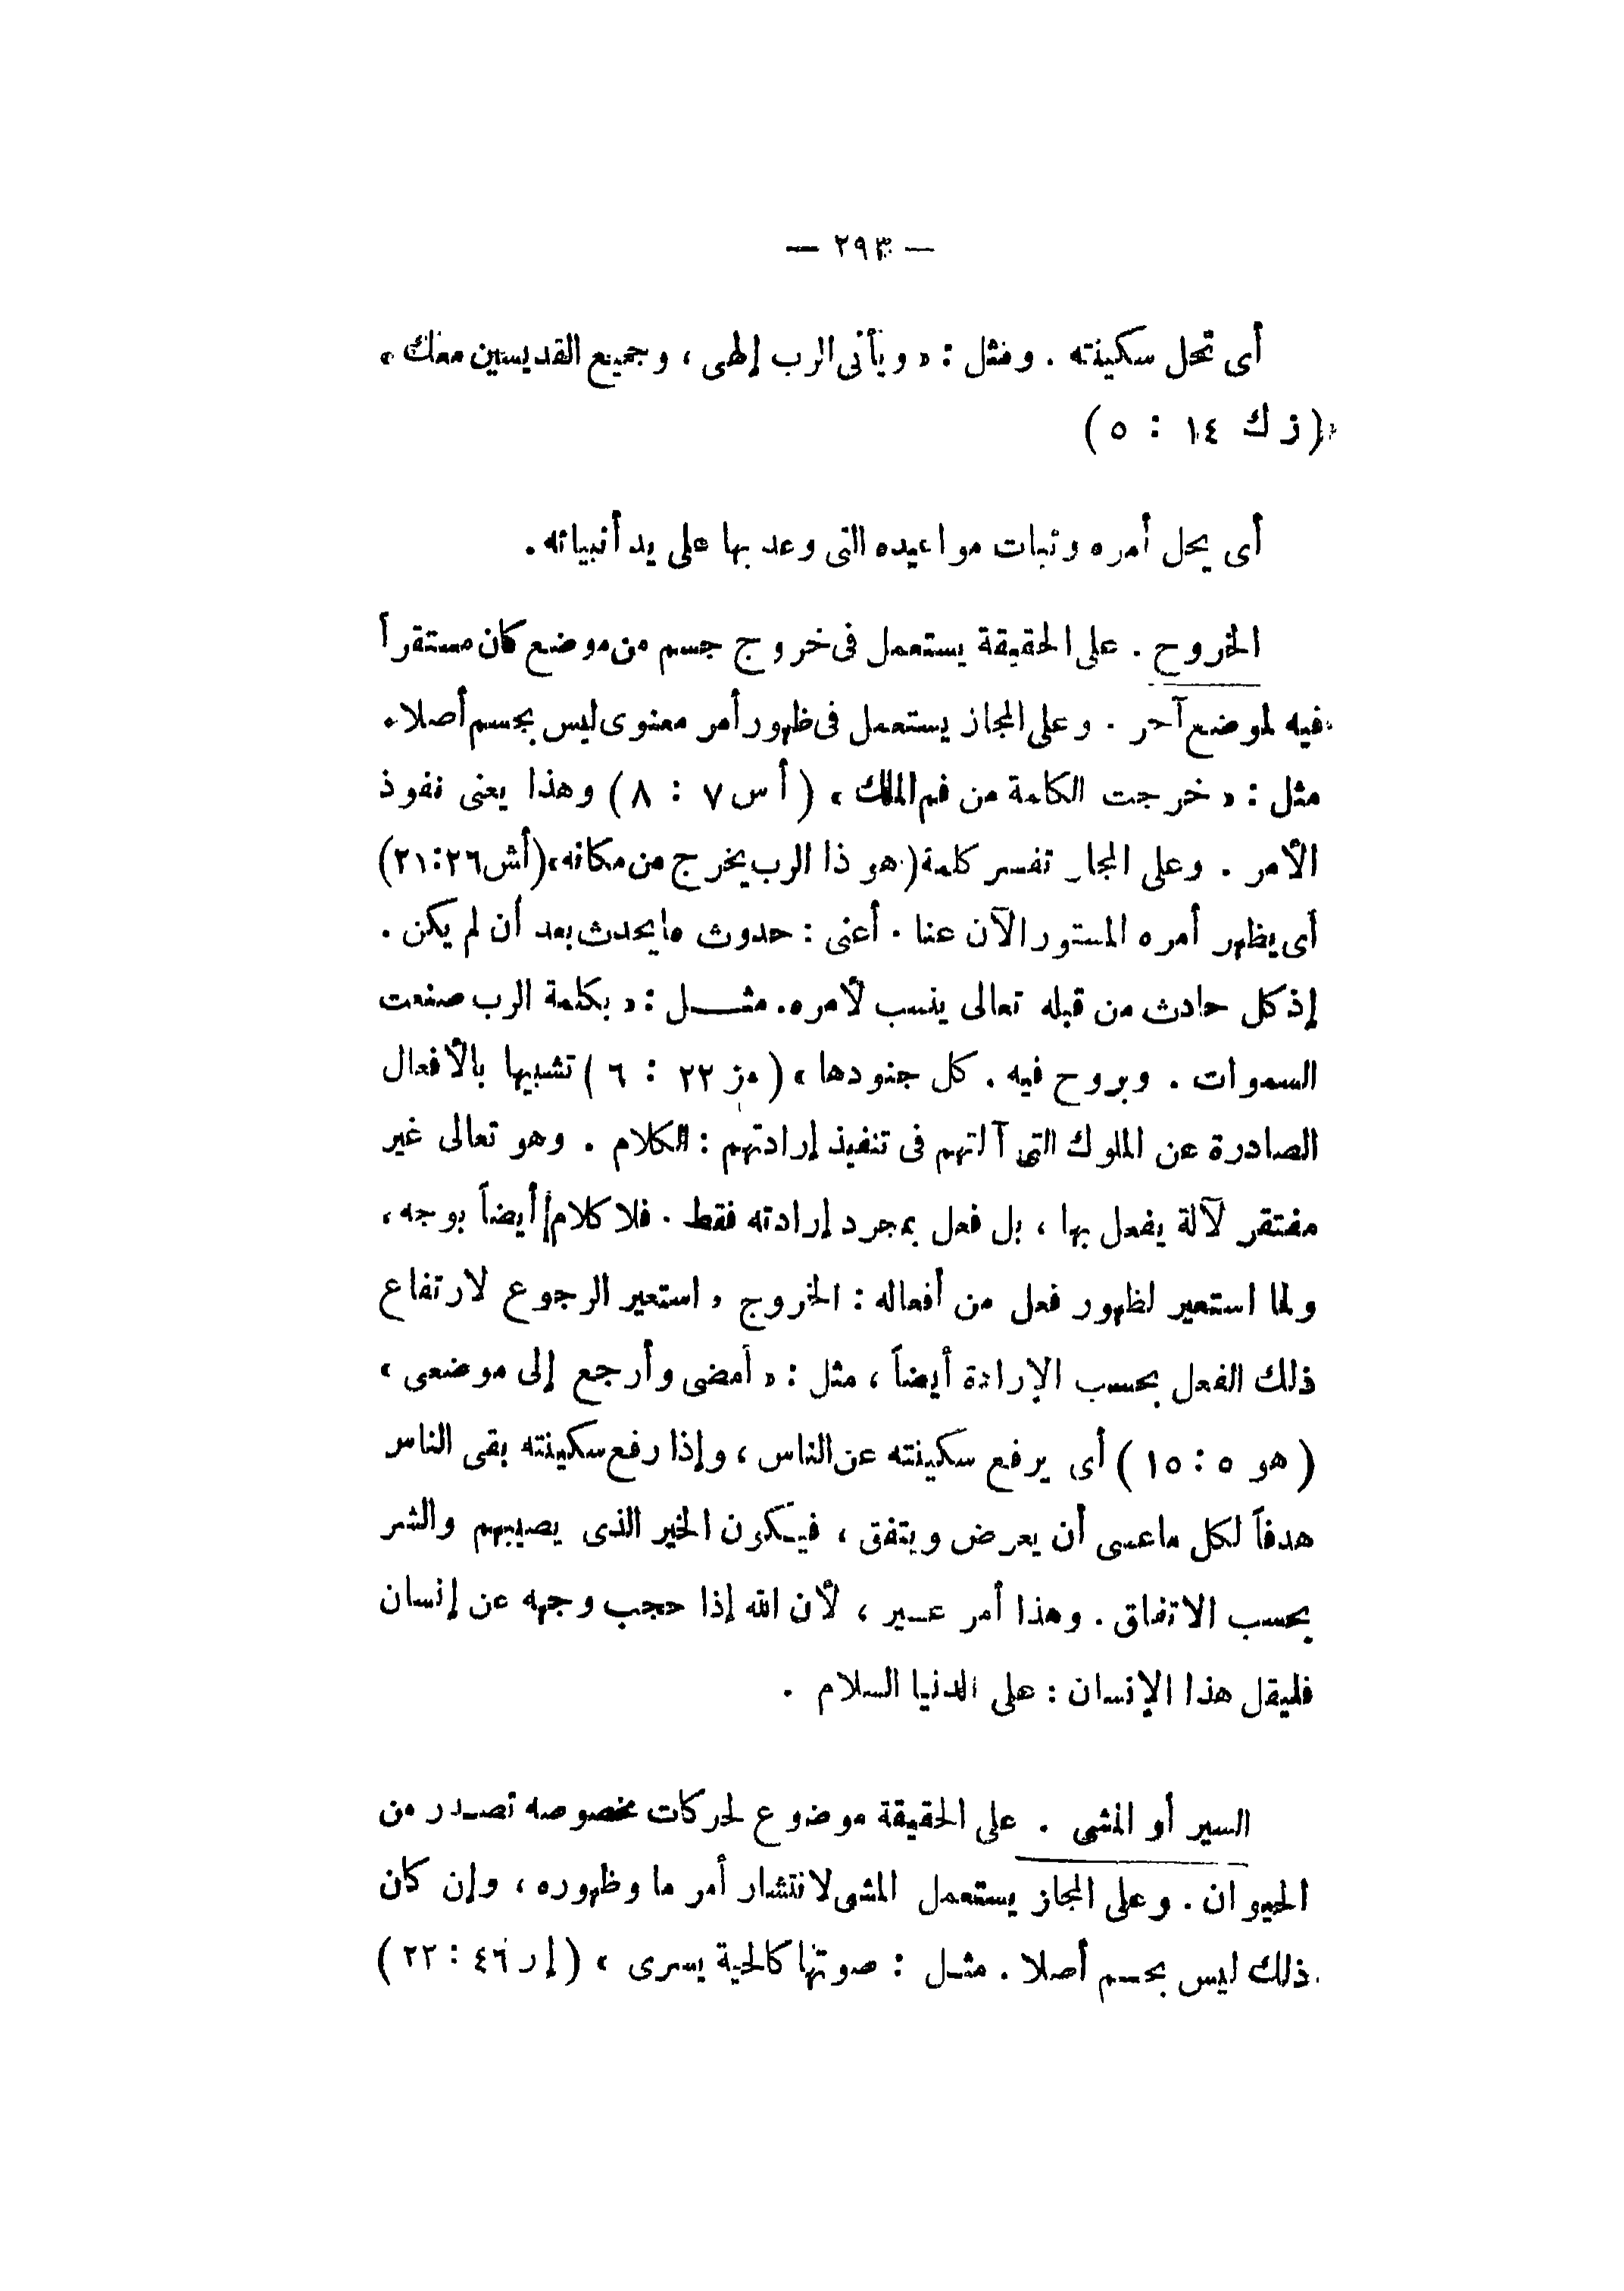 — ٢٩٣ —
أى تحل سكينته . ومثل : « ويأتى الرب إلهى ، وجميع القديسين معك »
(زك ١٤ : ٥)
أى يحل أمره وثبات مواعيده التى وعد بها على يد أنبيائه .
الخروج . على الحقيقة يستعمل فى خروج جسم من موضع كان مستقرأ
فيه لموضع آخر . وعلى المجاز يستعمل فى ظهور أمر معنوى ليس بجسم أصلا .
مثل : « خرجت الكلمة من فم الملك » (أس ٧ : ٨) وهذا يعنى نفوذ
الأمر . وعلى المجاز تفسر كلمة (هو ذا الرب يخرج من مكانه» (أش ٢٦:٢١)
أى يظهر أمره المستور الآن عنا . أعنى : حدوث ما يحدث بعد أن لم يكن .
إذ كل حادث من قبله تعالى ينسب لأمره. مثل : « بكلمة الرب صنعت
السموات . وبروح فيه . كل جنودها » (مز ٢٢ : ٦) تشبيها بالأفعال
الصادرة عن الملوك التى آلتهم فى تنفيذ إرادتهم : الكلام . وهو تعالى غير
مفتقر لآلة يفعل بها ، بل فعل بمجرد إرادته فقط . فلا كلام أيضاً بوجه ،
ولما استعير لظهور فعل من أفعاله : الخروج ، استعير الرجوع لارتفاع
ذلك الفعل بحسب الإرادة أيضاً ، مثل : « أمضى وأرجع إلى موضعى »
(هو ٥ : ١٥) أى يرفع سكينته عن الناس ، وإذا رفع سكينته بقى الناس
هدفاً لكل ما عسى أن يعرض ويتفق ، فيكون الخير الذى يصيبهم والشر
بحسب الاتفاق . وهذا أمر عسير ، لأن الله إذا حجب وجهه عن إنسان
فليقل هذا الإنسان : على الدنيا السلام .
السير أو المشى . على الحقيقة موضوع لحركات مخصوصه تصدر من
الحيوان . وعلى المجاز يستعمل المشى لانتشار أمر ما وظهوره ، وإن كان
ذلك ليس بجسم أصلا . مثل : صوتها كالحية يسرى » (إر ٤٦ : ٢٢)